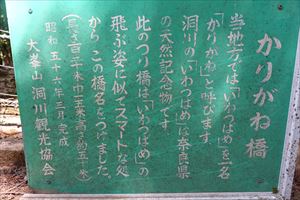 かりがね橋
当地方では「いわつばめ」を一名
「かりがね」と呼びます。
洞川の「いわつばめ」は奈良県
の天然記念物です。
此のつり橋は「いわつばめ」の
飛ぶ姿に似てスマートな処
から この橋名をつけました。
(長さ百二十米巾一米高さ約五十米)
昭和五十六年三月完成
大峯山洞川観光協会